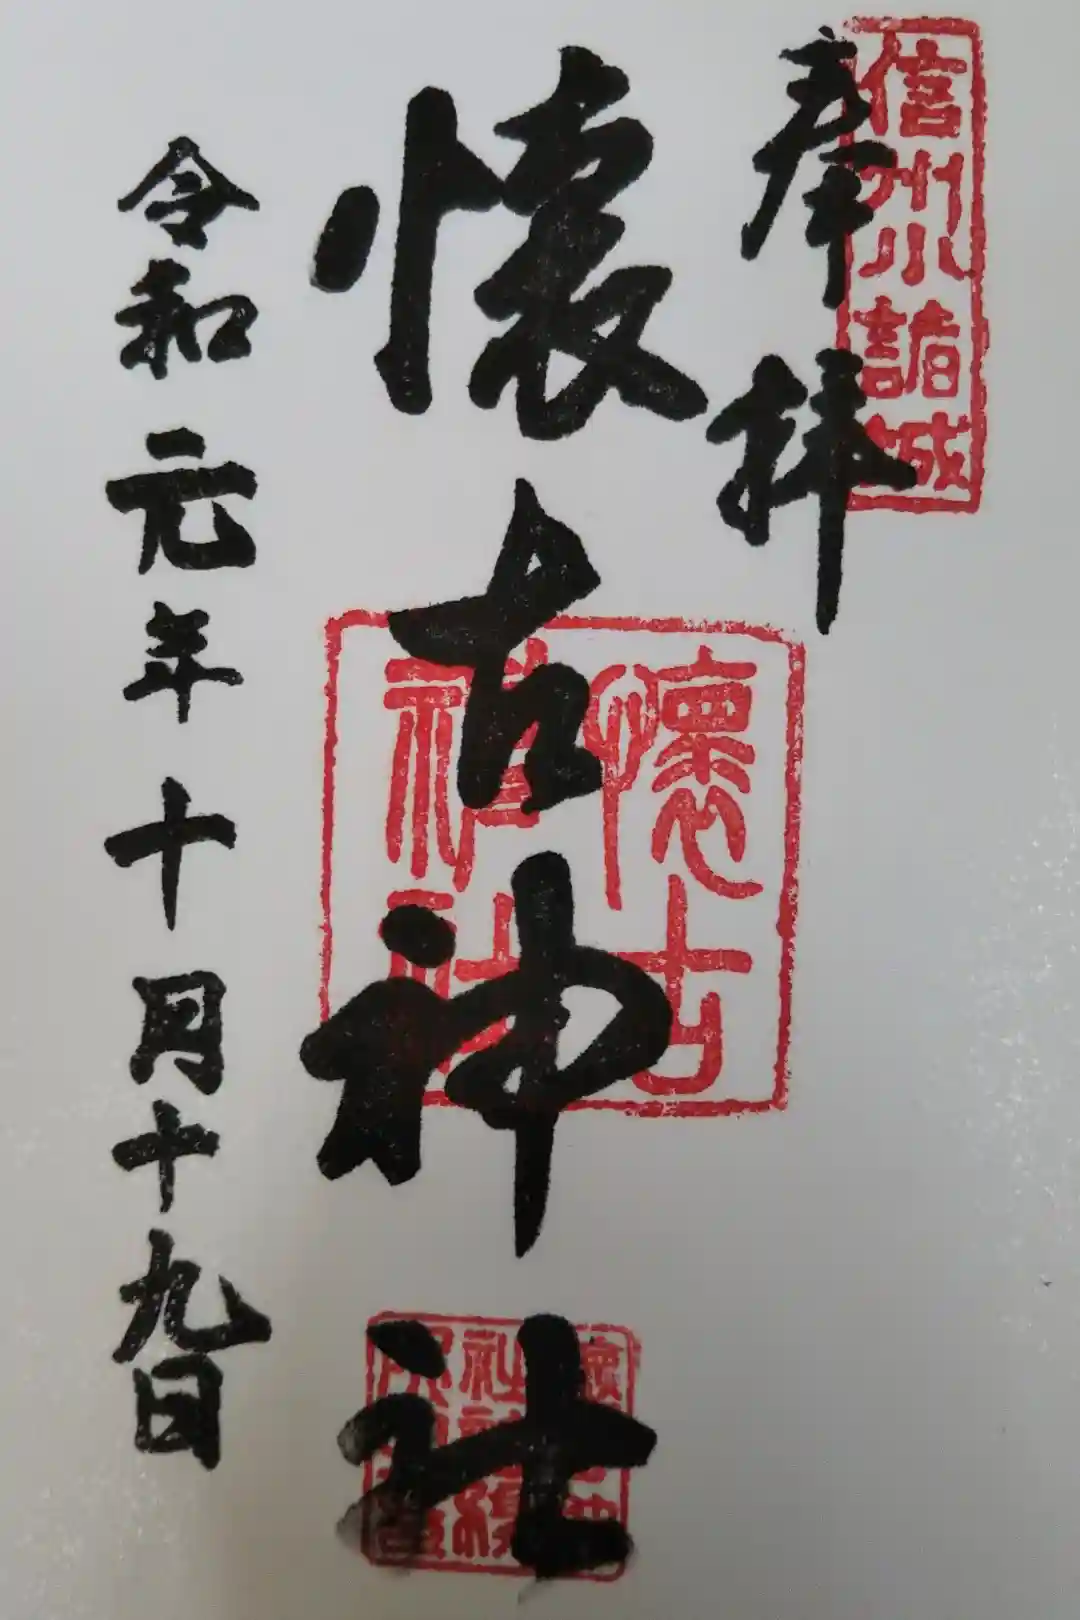 信州小諸城
奉拝
懐古神社
懐古神社
令和元年十月十九日